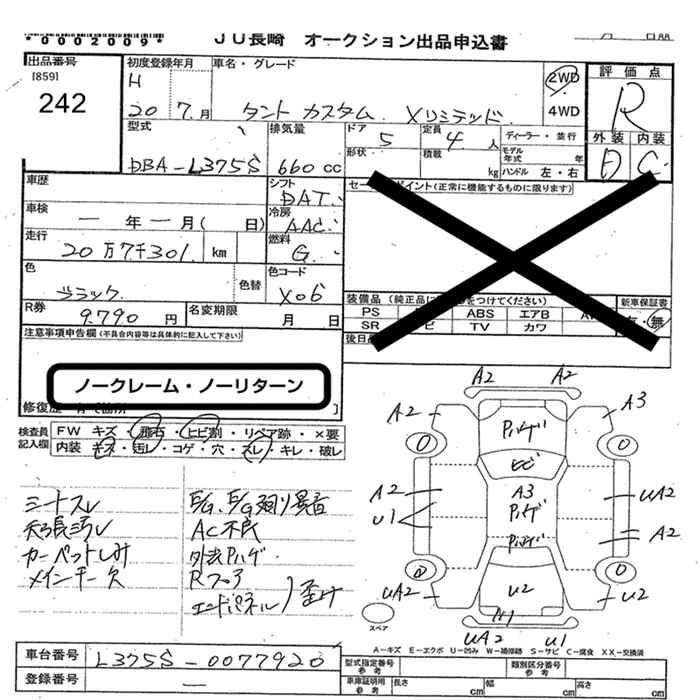 *0002009*
JU長崎 オークション出品申込書
出品番号
[859]
242
初度登録年月
H
20 7月
車名・グレード
タント カスタム Xリミテッド
2WD
4WD
評価点
R
外装 内装
D C
型式
DBA-L375S
排気量
660 cc
ドア 5
形状
定員 4 人
積載 kg
ディーラー・並行
モデル年式 年
ハンドル 左・右
車歴
シフト
DAT
セールスポイント(正常に機能するものに限ります)
車検
― 年 ― 月( 日)
冷房
AAC
走行
20万7千301 km
燃料
G
色
ブラック
色替
色コード
X06
R券
9,790 円
名変期限
月 日
装備品
PS ABS エアB
SR TV カワ
新車保証書
有・無
後日品
注意事項申告欄(不具合内容等は具体的に記入して下さい)
ノークレーム・ノーリターン
修復歴
検査員記入欄
FW キズ・飛石・ヒビ割・リペア跡・×要
内装 キズ・汚レ・コゲ・穴・スレ・キレ・破レ
シートスレ
天張汚レ
カーペットしみ
メインキー欠
E/G、E/G廻り異音
AC不良
外装Pハゲ
Rフロア
エンドパネル)歪け
A2 A2
A2 A3
Pハゲ
ヒビ
A2 A3 UA2
Pハゲ
U1 A2
Pハゲ
UA2 U2 U2
UA2 U1
スペア
A-キズ E-エクボ U-凹み W-補修跡 S-サビ C-腐食 XX-交換済
車台番号
L375S-0077920
登録番号
―
型式指定番号 参考
類別区分番号 参考
車庫証明用 参考
長さ cm
幅 cm
高さ cm